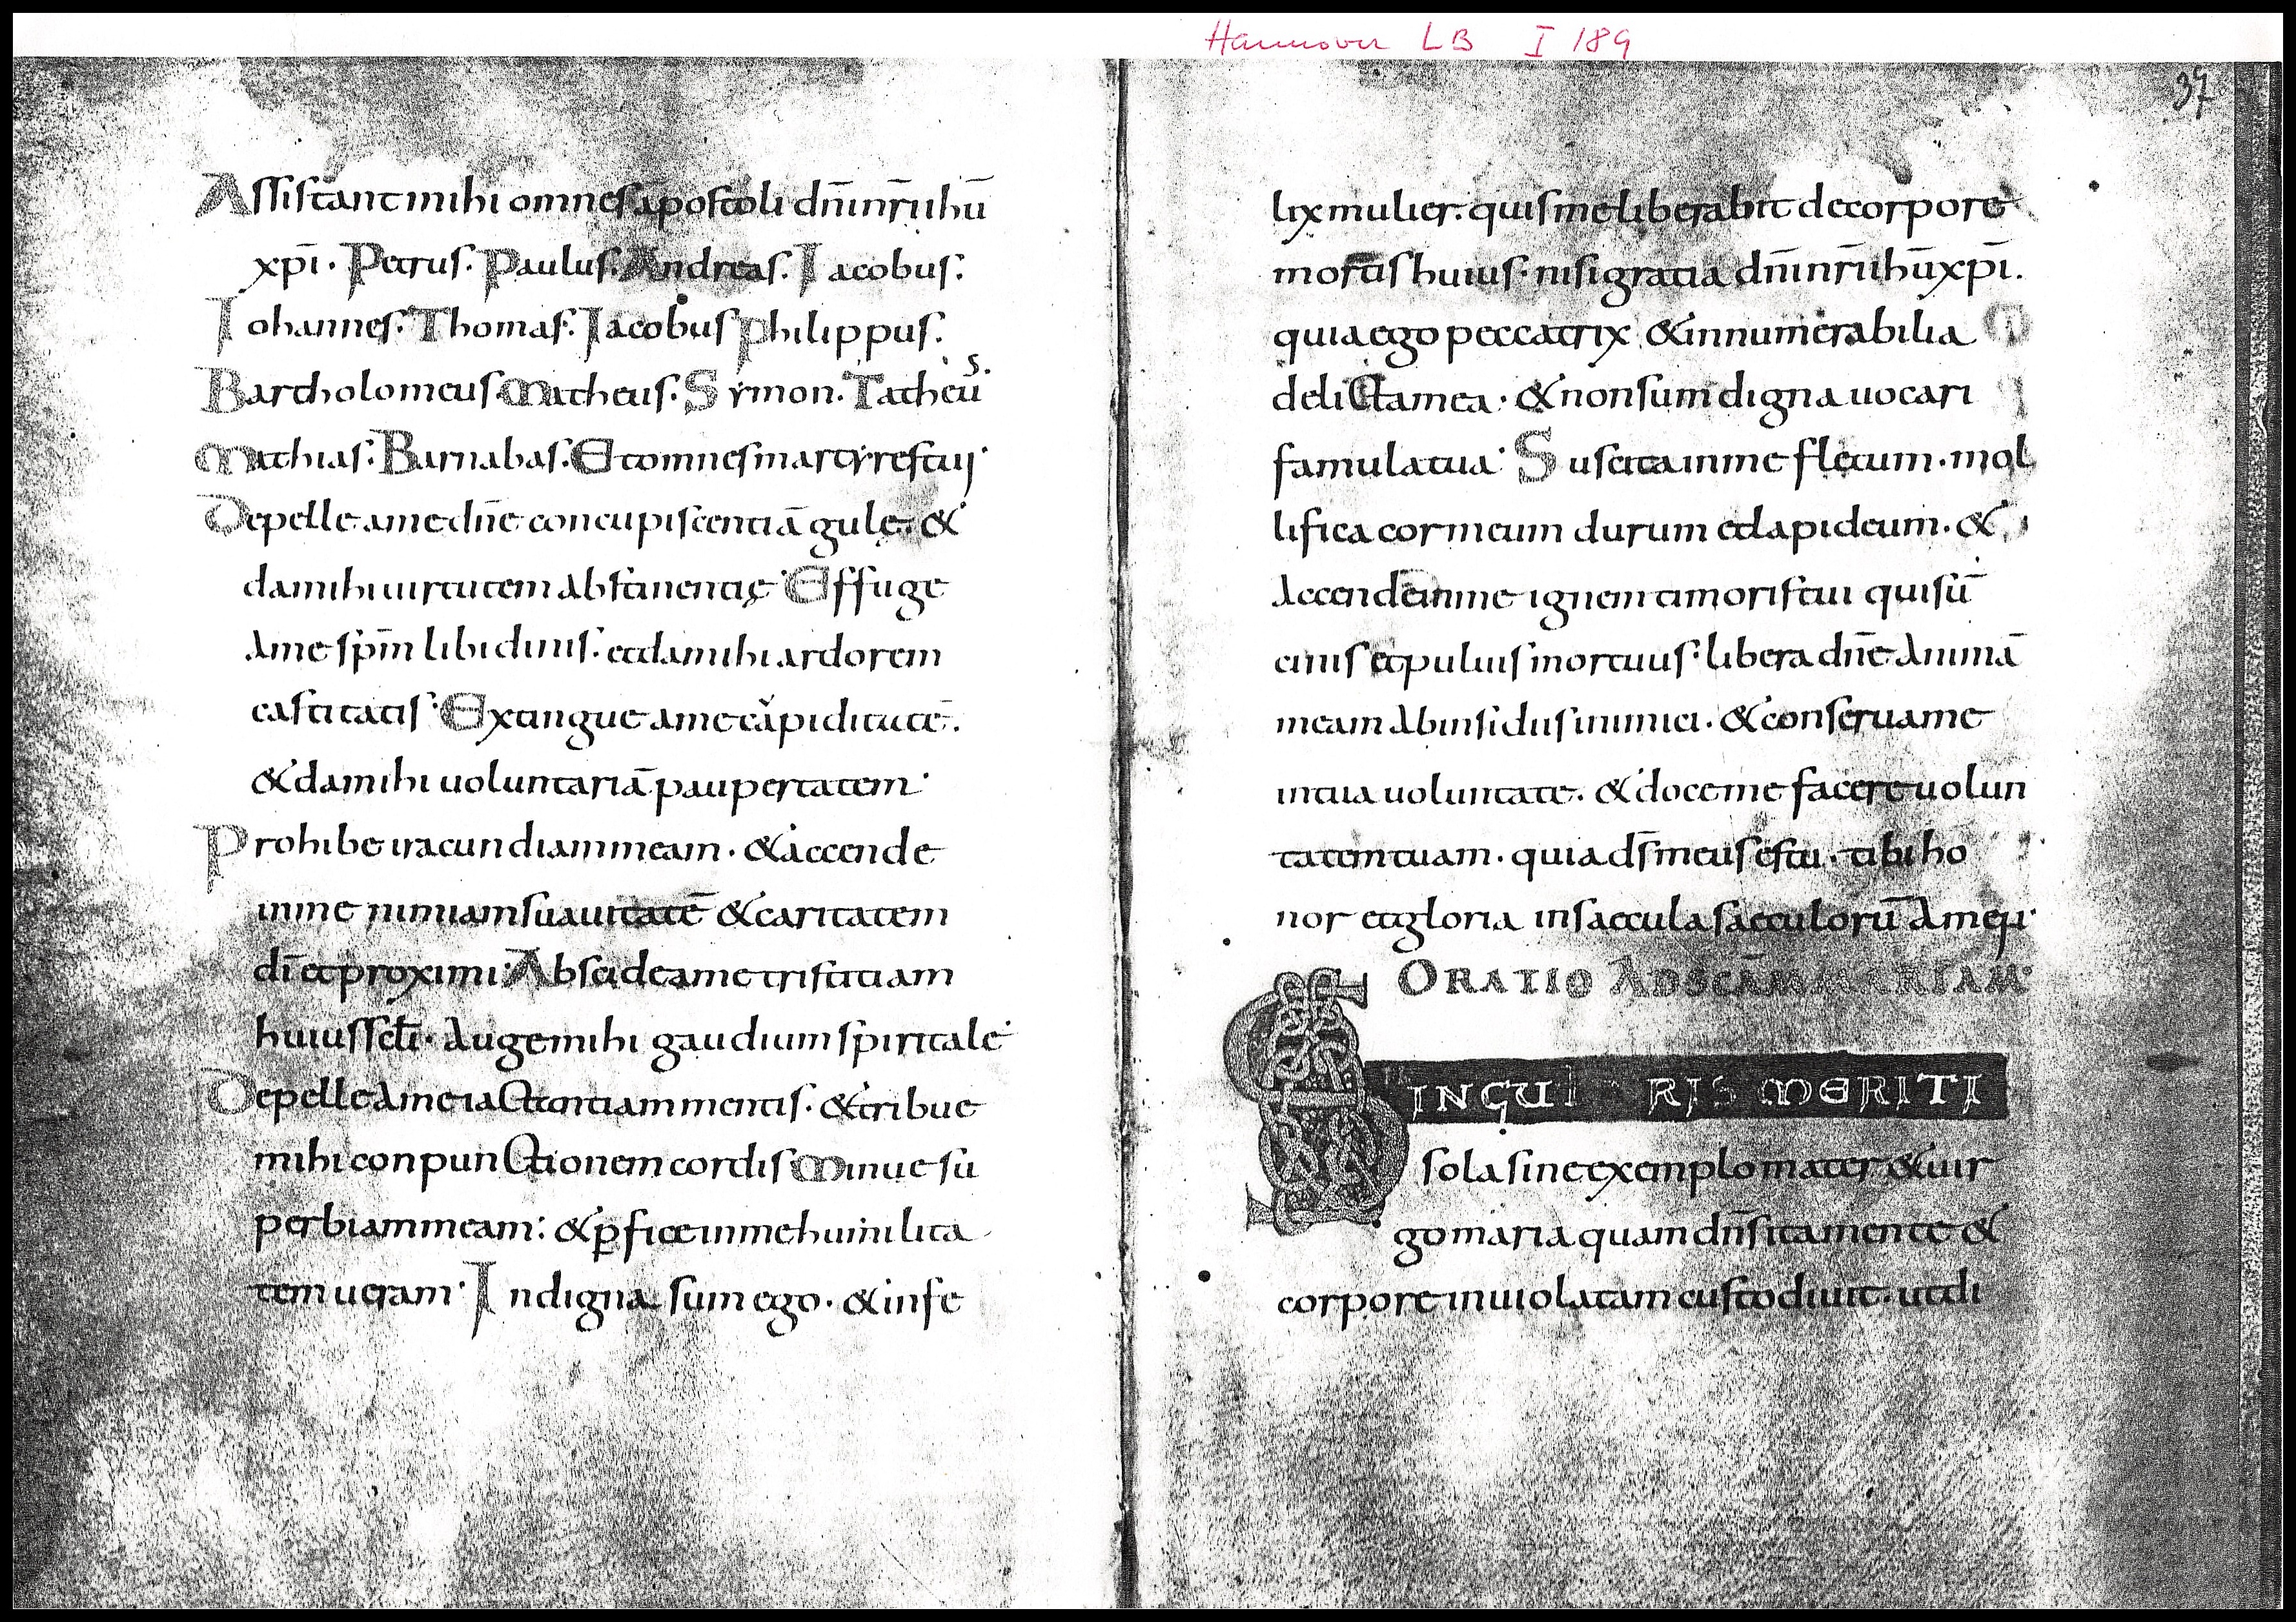 Hannover LB I 189
37
Assistant mihi omnes apostoli dn̄i nr̄i ihū
xp̄i. Petrus. Paulus. Andreas. Iacobus.
Iohannes. Thomas. Iacobus Philippus.
Bartholomeus Matheus. Symon. Tatheus.
Mathias. Barnabas. Et omnes martyres tui
Depelle a me dn̄e concupiscentiā gulę. &
da mihi uirtutem abstinentię Effuge
a me sp̄m libidinis. et da mihi ardorem
castitatis Extingue a me
& da mihi uoluntariā paupertatem
Prohibe iracundiam meam. & accende
in me nimiam suauitatē & caritatem
dī et proximi. Abscide a me tristitiam
huius scl̄i. Auge mihi gaudium spiritale
Depelle a me iactantiam mentis. & tribue
mihi conpunctionem cordis Minue su
perbiam meam: & p̄fice in me humilita
tem ueram. Indigna sum ego. & infe
lix mulier. quis me liberabit de corpore
mortis huius. nisi gratia dn̄i nr̄i ihū xp̄i.
quia ego peccatrix & innumerabilia
delicta mea. & non sum digna uocari
famula tua. Suscita in me fletum. mol
lifica cor meum durum et lapideum. &
accende in me ignem timoris tui qui sū
cinis et puluis mortuus. libera dn̄e animā
meam ab insidiis inimici. & conserua me
in tua uoluntate. & doce me facere uolun
tatem tuam. quia ds̄ meus es tu. tibi ho
nor et gloria in saecula saeculorū amen.
ORATIO AD SCĀM MARIAM.
SINGULARIS MERITI
sola sine exemplo mater & uir
go maria quam dn̄s ita mente &
corpore inuiolatam custodiuit. ut di